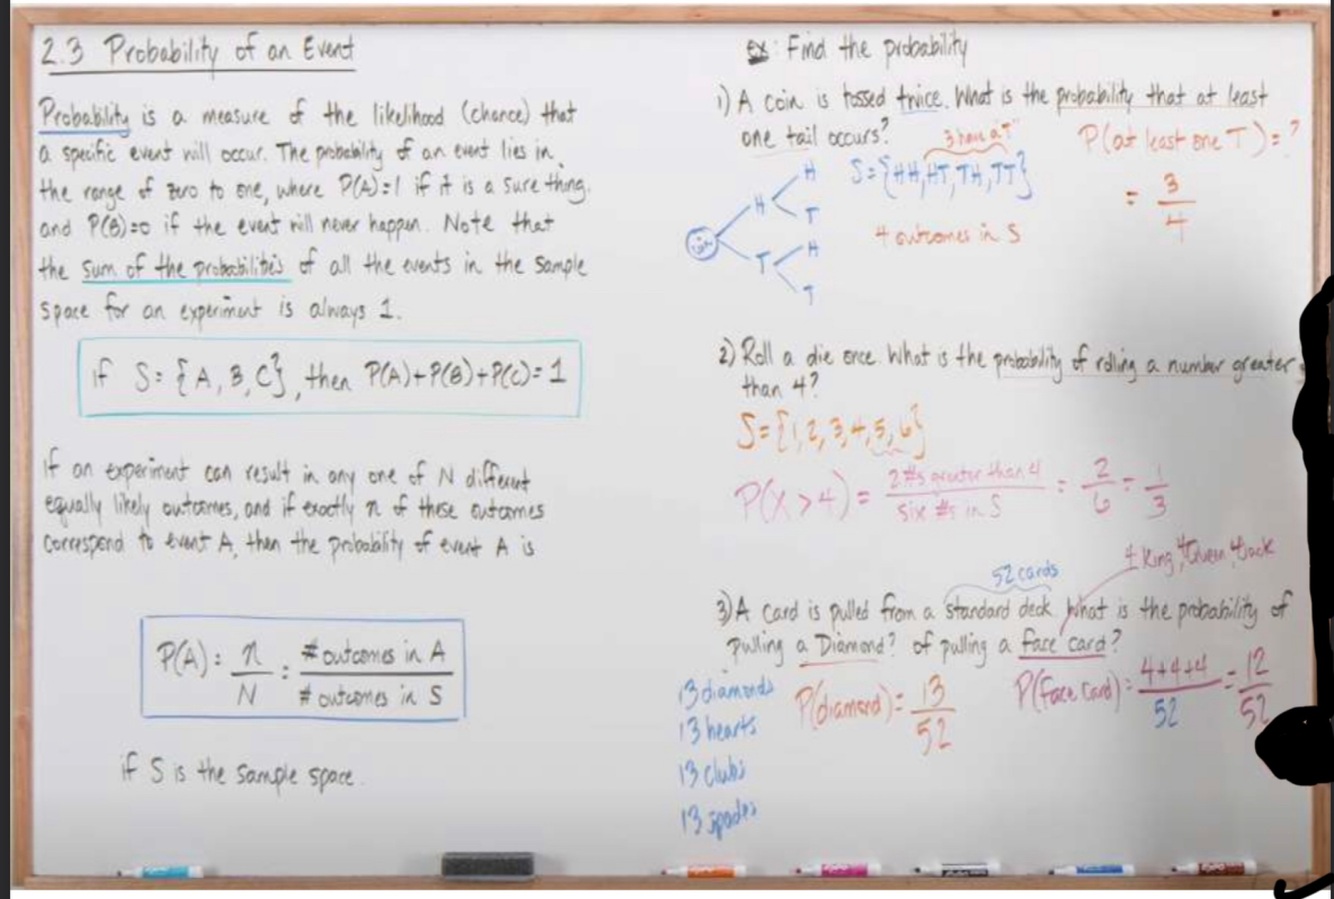 2.3 Probability of an Event
Probability is a measure of the likelihood (chance) that
a specific event will occur. The probability of an event lies in
the range of zero to one, where P(A)=1 if it is a sure thing.
and P(B)=0 if the event will never happen. Note that
the sum of the probabilities of all the events in the sample
space for an experiment is always 1.
if S={A, B, C}, then P(A)+P(B)+P(C)=1
If an experiment can result in any one of N different
equally likely outcomes, and if exactly n of these outcomes
correspond to event A, then the probability of event A is
P(A) = n/N = # outcomes in A / # outcomes in S
if S is the sample space.
ex: Find the probability
1) A coin is tossed twice. What is the probability that at least
one tail occurs?
3 have a "T"
P(at least one T) = ?
S={HH, HT, TH, TT}
= 3/4
4 outcomes in S
coin
H
T
H
T
H
T
2) Roll a die once. What is the probability of rolling a number greater
than 4?
S={1,2,3,4,5,6}
P(X>4) = 2 #s greater than 4 / six #s in S = 2/6 = 1/3
52 cards
4 king, 4 Queen, 4 Jack
3) A card is pulled from a standard deck. What is the probability of
pulling a Diamond? of pulling a face card?
13 diamonds
13 hearts
13 clubs
13 spades
P(diamond) = 13/52
P(face card) = 4+4+4/52 = 12/52